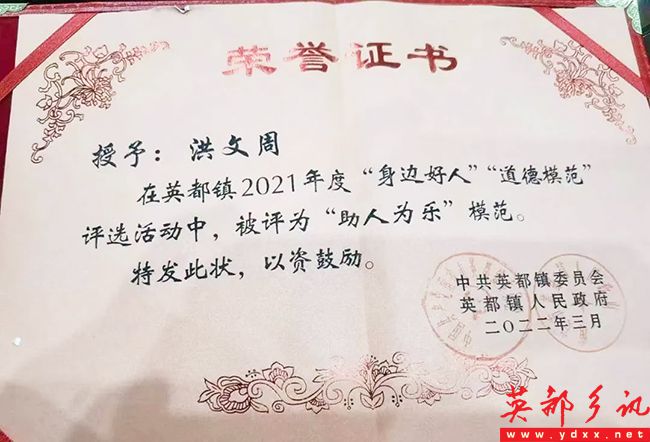 荣誉证书
授予：洪文周
在英都镇2021年度“身边好人”“道德模范”
评选活动中，被评为“助人为乐”模范。
特发此状，以资鼓励。
中共英都镇委员会
英都镇人民政府
二〇二二年三月
英都乡讯
www.ydxx.net